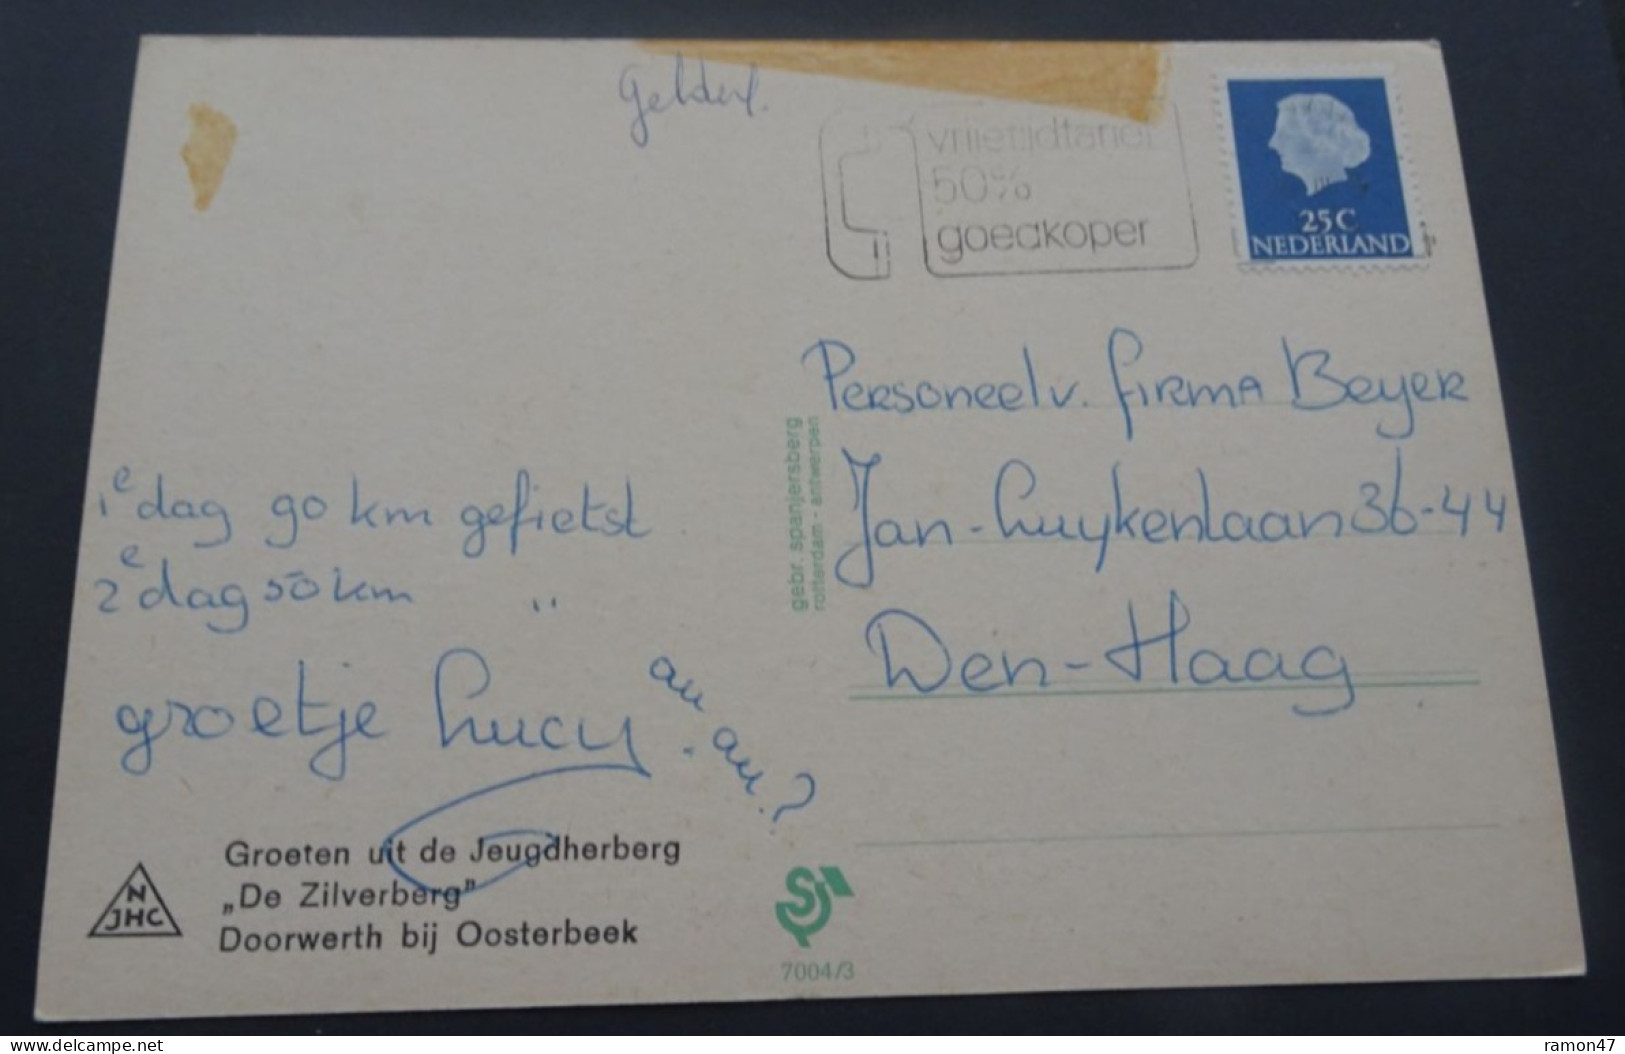 Gelderl.
vrijetijdtarief
50%
goedkoper
25 C
NEDERLAND
1e dag 90 km gefietst.
2e dag 50 km "
groetje Lucy
au . au. ?
Groeten uit de Jeugdherberg
„De Zilverberg"
Doorwerth bij Oosterbeek
N
JHC
gebr. spanjersberg
rotterdam - antwerpen
Personeel v. firma Beyer
Jan-Luykenlaan 36-44
Den-Haag
Sj
7004/3
delcampe.net
ramon47